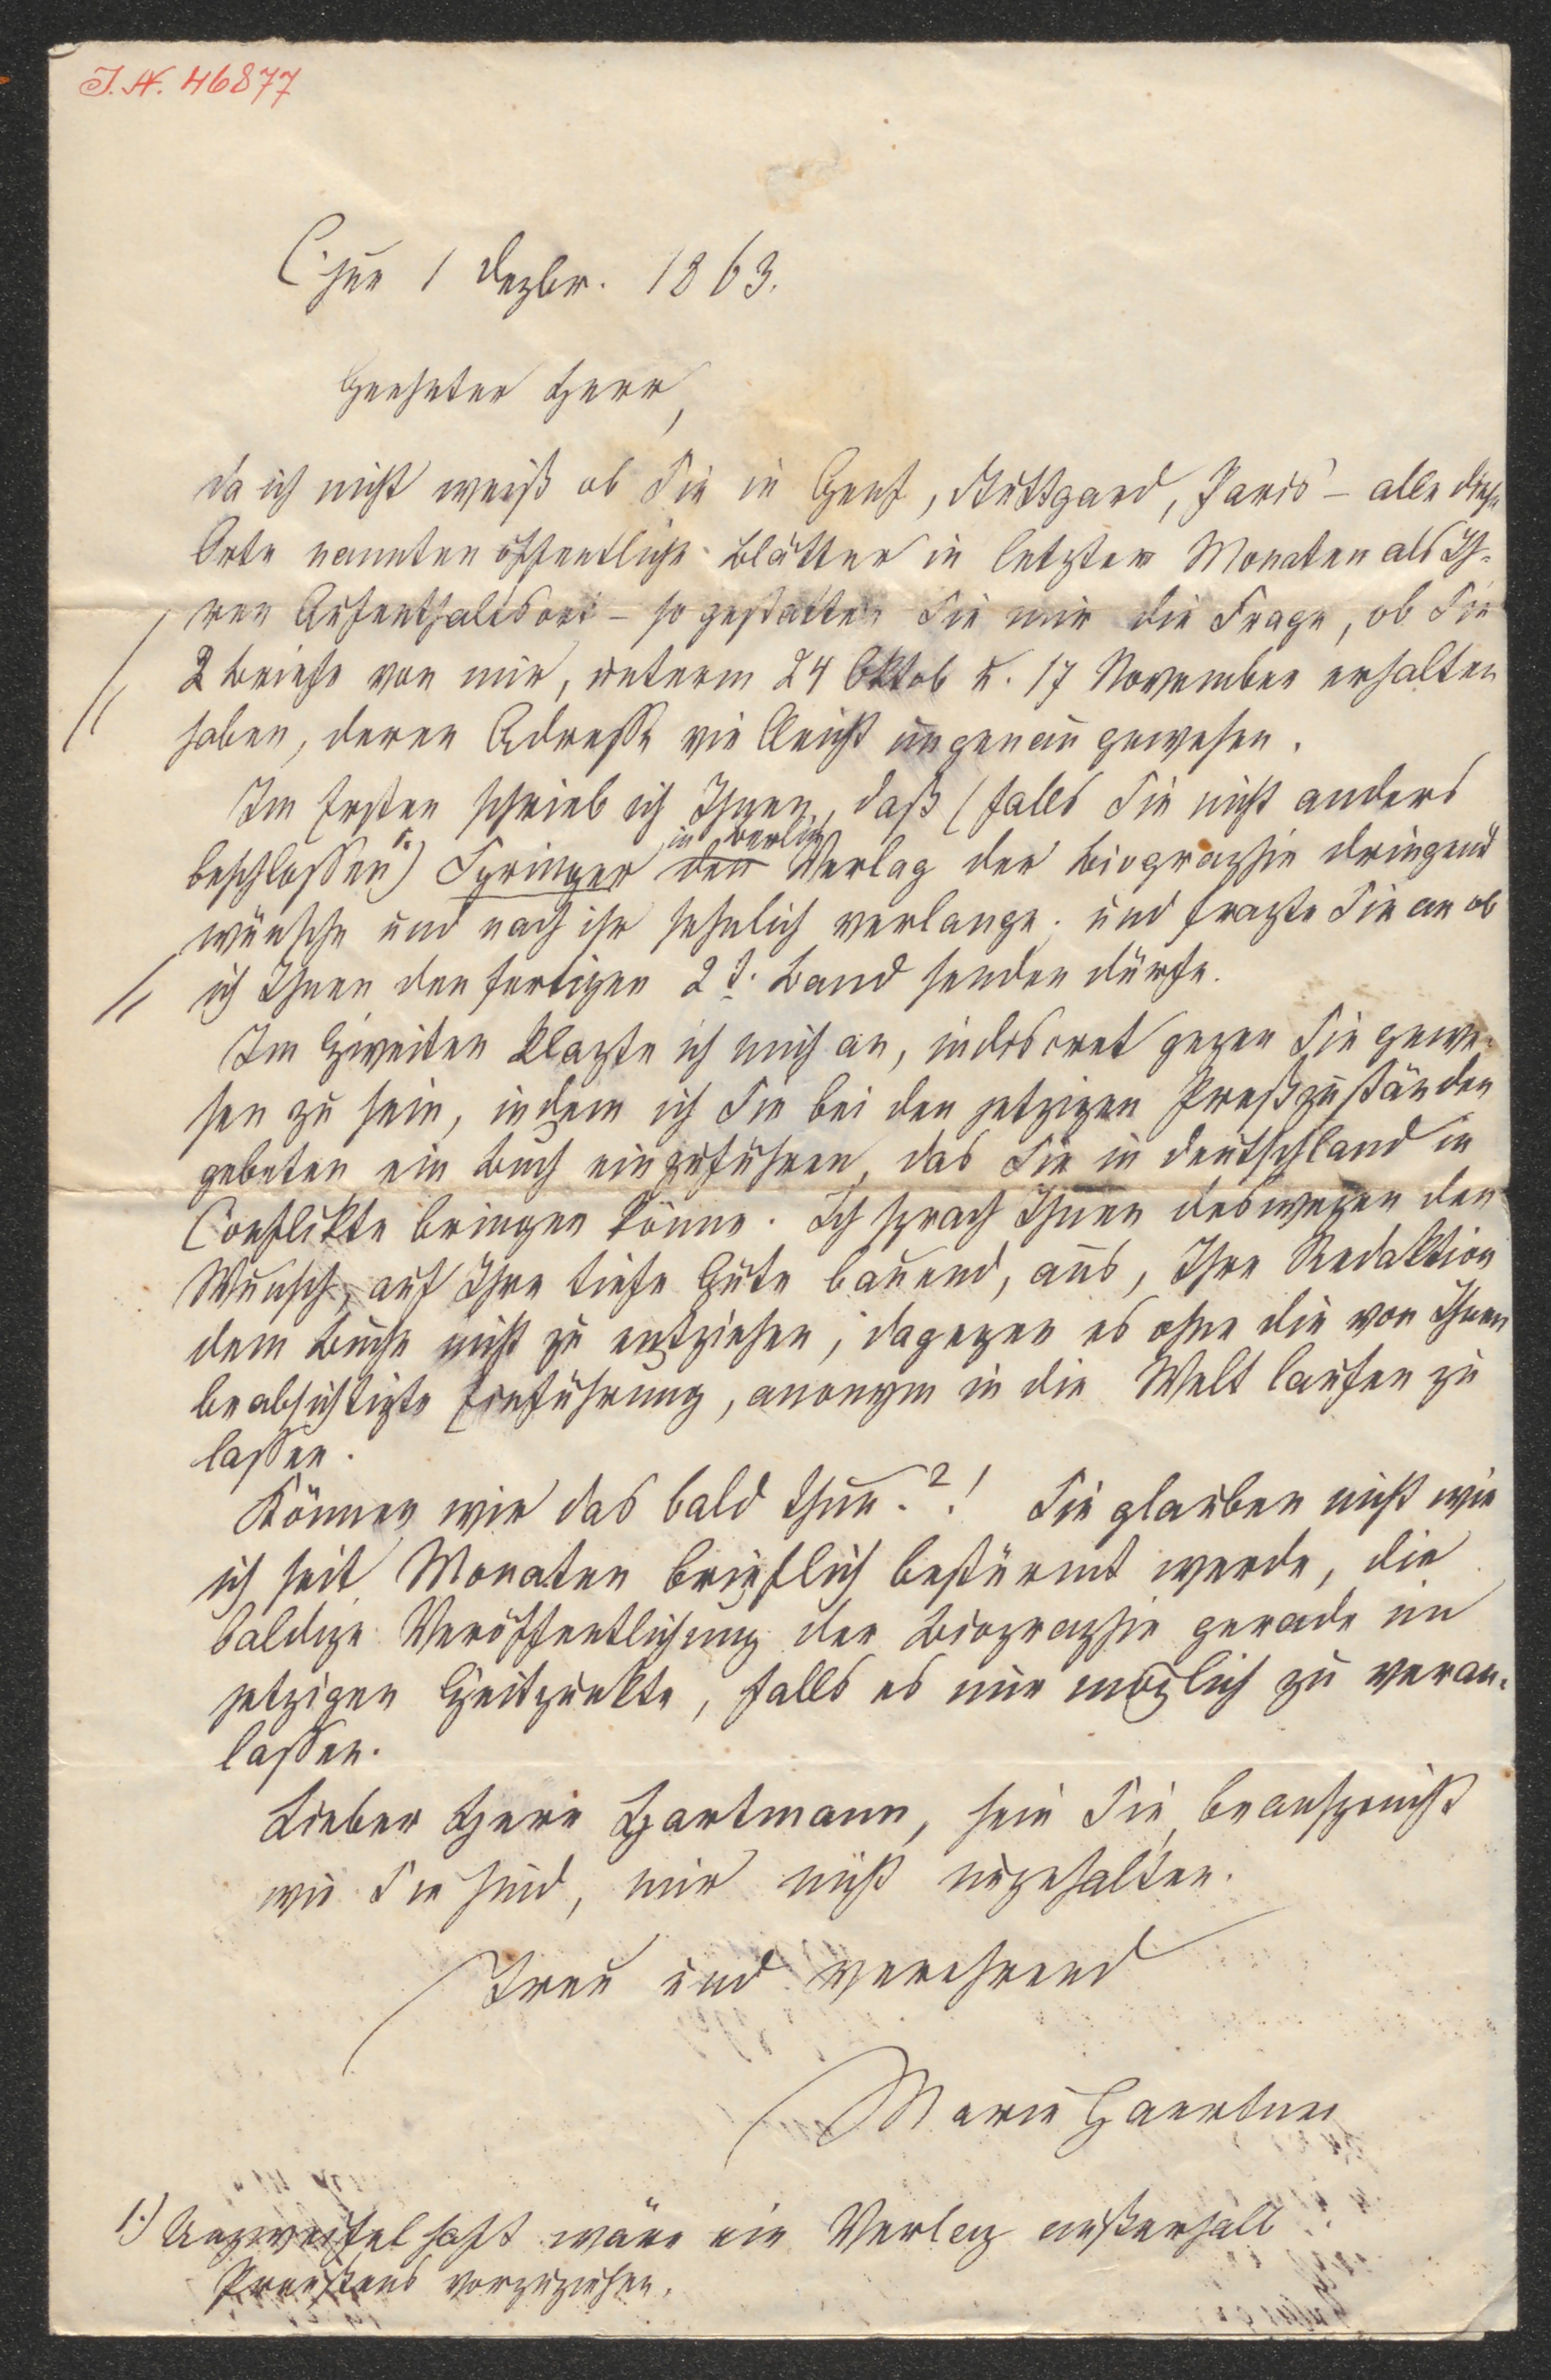 I. N. 46877
Chur 1 Dezbr. 1863.
Geehrter Herr,
da ich nicht weiß ob Sie in Genf, Stuttgard, Paris – alle diese
Orte nannten öffentliche Blätter in letzten Monaten als Ih-
ren Aufenthaltsort – so gestatten Sie mir die Frage, ob Sie
2 Briefe von mir, unterm 24 Oktob u. 17 November erhalten
haben, deren Adresse vielleicht ungenau gewesen.
Im Ersten schrieb ich Ihnen, daß (falls Sie nicht anders
in Berlin
beschlossen 1.) Springer den Verlag der Biographie dringend
wünsche und nach ihr sehnlich verlange. und fragte Sie an ob
ich Ihnen den fertigen 2t. Band senden dürfe.
Im Zweiten klagte ich mich an, indiscret gegen Sie gewe-
sen zu sein, indem ich Sie bei den jetzigen Preßzuständen
gebeten ein Buch einzuführen, das Sie in Deutschland in
Conflikte bringen könne. Ich sprach Ihnen deswegen den
Wunsch, auf Ihre tiefe Güte bauend, aus, Ihre Redaktion
dem Buche nicht zu entziehen, dagegen es ohne die von Ihnen
beabsichtigte Einführung, anonym in die Welt laufen zu
lassen.
Können wir das bald thun.?! Sie glauben nicht wie
ich seit Monaten brieflich bestürmt werde, die
baldige Veröffentlichung der Biographie gerade im
jetzigen Zeitpunkte, falls es mir möglich zu veran-
lassen.
Lieber Herr Hartmann, sein Sie, beansprucht
wie Sie sind, mir nicht ungehalten.
Treu und verehrend
Marie
1.) Unzweifelhaft wäre ein Verlag außerhalb
Preußens vorzuziehen.